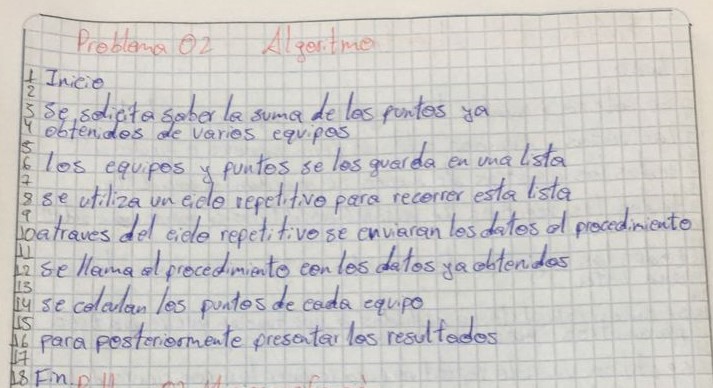 Problema 02 Algoritmo
1 Inicio
2
3 Se solicita saber la suma de los puntos ya
4 obtenidos de varios equipos
5
6 los equipos y puntos se los guarda en una lista
7
8 se utiliza un ciclo repetitivo para recorrer esta lista
9
10 a traves del ciclo repetitivo se enviaran los datos al procedimiento
11
12 se llama al procedimiento con los datos ya obtenidos
13
14 se calculan los puntos de cada equipo
15
16 para posteriormente presentar los resultados
17
18 Fin.